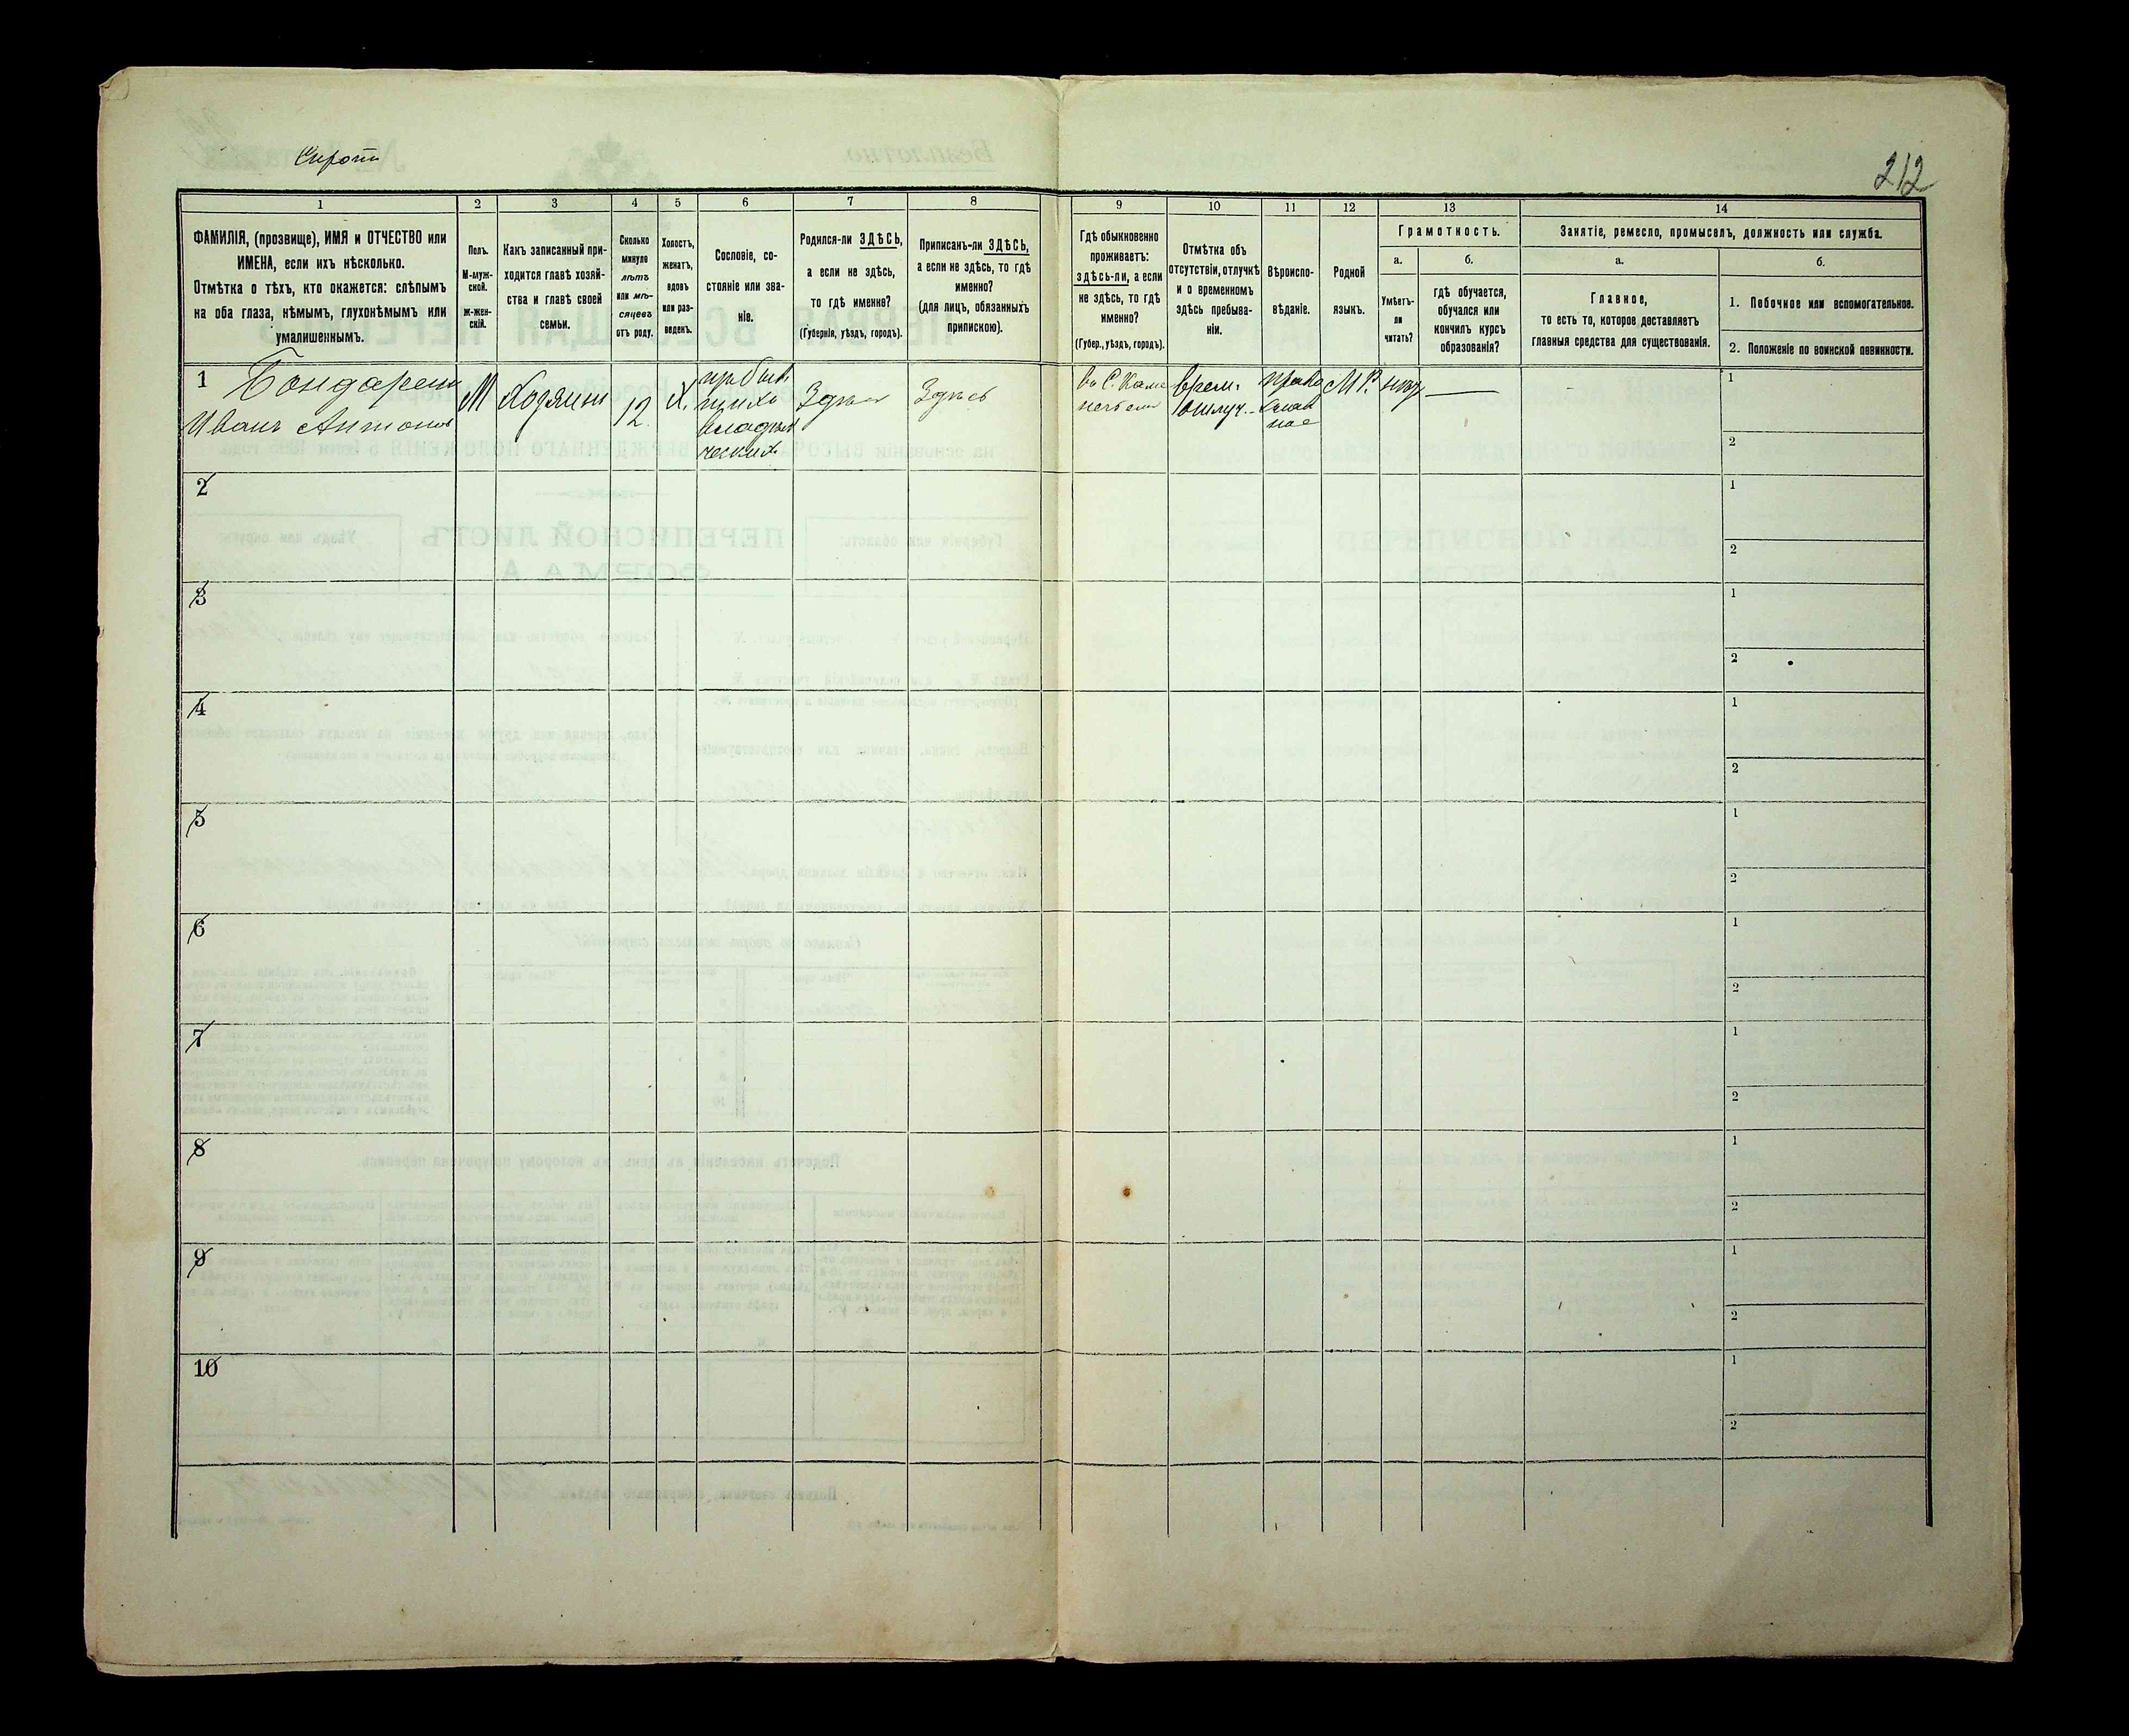 212
1
2
3
4
5
6
7
8
9
10
11
12
13
14
ФАМИЛІЯ, (прозвище), ИМЯ и ОТЧЕСТВО или
ИМЕНА, если ихъ нѣсколько.
Отмѣтка о тѣхъ, кто окажется: слѣпымъ
на оба глаза, нѣмымъ, глухонѣмымъ или
умалишеннымъ.
Полъ.
М-муж-
ской.
Ж-жен-
скій.
Какъ записанный при-
ходится главѣ хозяй-
ства и главѣ своей
семьи.
Сколько
минуло
лѣтъ
или мѣ-
сяцевъ
отъ роду.
Холостъ,
женатъ,
вдовъ
или раз-
веденъ.
Сословіе, со-
стояніе или зва-
ніе.
Родился-ли ЗДѢСЬ,
а если не здѣсь,
то гдѣ именно?
(Губернія, уѣздъ, городъ).
Приписанъ-ли ЗДѢСЬ,
а если не здѣсь, то гдѣ
именно?
(для лицъ, обязанныхъ
припискою).
Гдѣ обыкновенно
проживаетъ:
здѣсь-ли, а если
не здѣсь, то гдѣ
именно?
(Губер., уѣздъ, городъ).
Отмѣтка объ
отсутствіи, отлучкѣ
и о временномъ
здѣсь пребыва-
ніи.
Вѣроиспо-
вѣданіе.
Родной
языкъ.
Грамотность.
а.
Умѣетъ-
ли
читать?
б.
гдѣ обучается,
обучался или
кончилъ курсъ
образованія?
Занятіе, ремесло, промыселъ, должность или служба.
а.
Главное,
то есть то, которое доставляетъ
главныя средства для существованія.
б.
1. Побочное или вспомогательное.
2. Положеніе по воинской повинности.
1
Иванъ Антоновъ
М
Хозяинъ
12
Х.
Здѣсь
Здѣсь
врем.
отлуч.
право
слав
ное
М Р.
нѣт
1
2
2
1
2
3
1
2
4
1
2
5
1
2
6
1
2
7
1
2
8
1
2
9
1
2
10
1
2